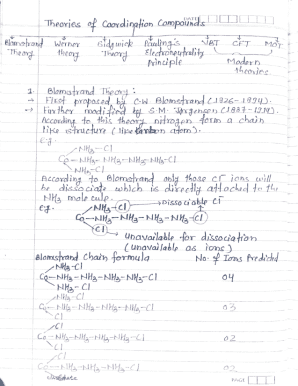 Theories of Coordination Compounds
DATE
Blomstrand Theory
Werner theory
Sidgwick Theory
Pauling's Electroneutrality Principle
VBT
CFT
MOT
Modern theories
1. Blomstrand Theory :
→ First proposed by C.W. Blomstrand
→ Further modified by S.M. Jorgensen (1837-1914).
According to this theory nitrogen form a chain
like structure (like carbon atom).
e.g.
NH3-Cl
Co-NH3-NH3-NH3-NH3-Cl
Cl
According to Blomstrand only those Cl⁻ ions will
be dissociate which is directly attached to the
NH3 molecule.
e.g.
NH3-Cl → Dissociable Cl⁻
Co-NH3-NH3-NH3-NH3-Cl
Cl
unavailable for dissociation
(unavailable as ions)
Blomstrand Chain formula
No. of Ions Predicted
NH3-Cl
Co-NH3-NH3-NH3-NH3-Cl 04
NH3-Cl
NH3-Cl
Co-NH3-NH3-NH3-NH3-Cl 03
Cl
Cl
Co-NH3-NH3-NH3-NH3-Cl 02
Cl
Cl
Co-NH3-NH3-NH3-Cl 02
Cl
PAGE